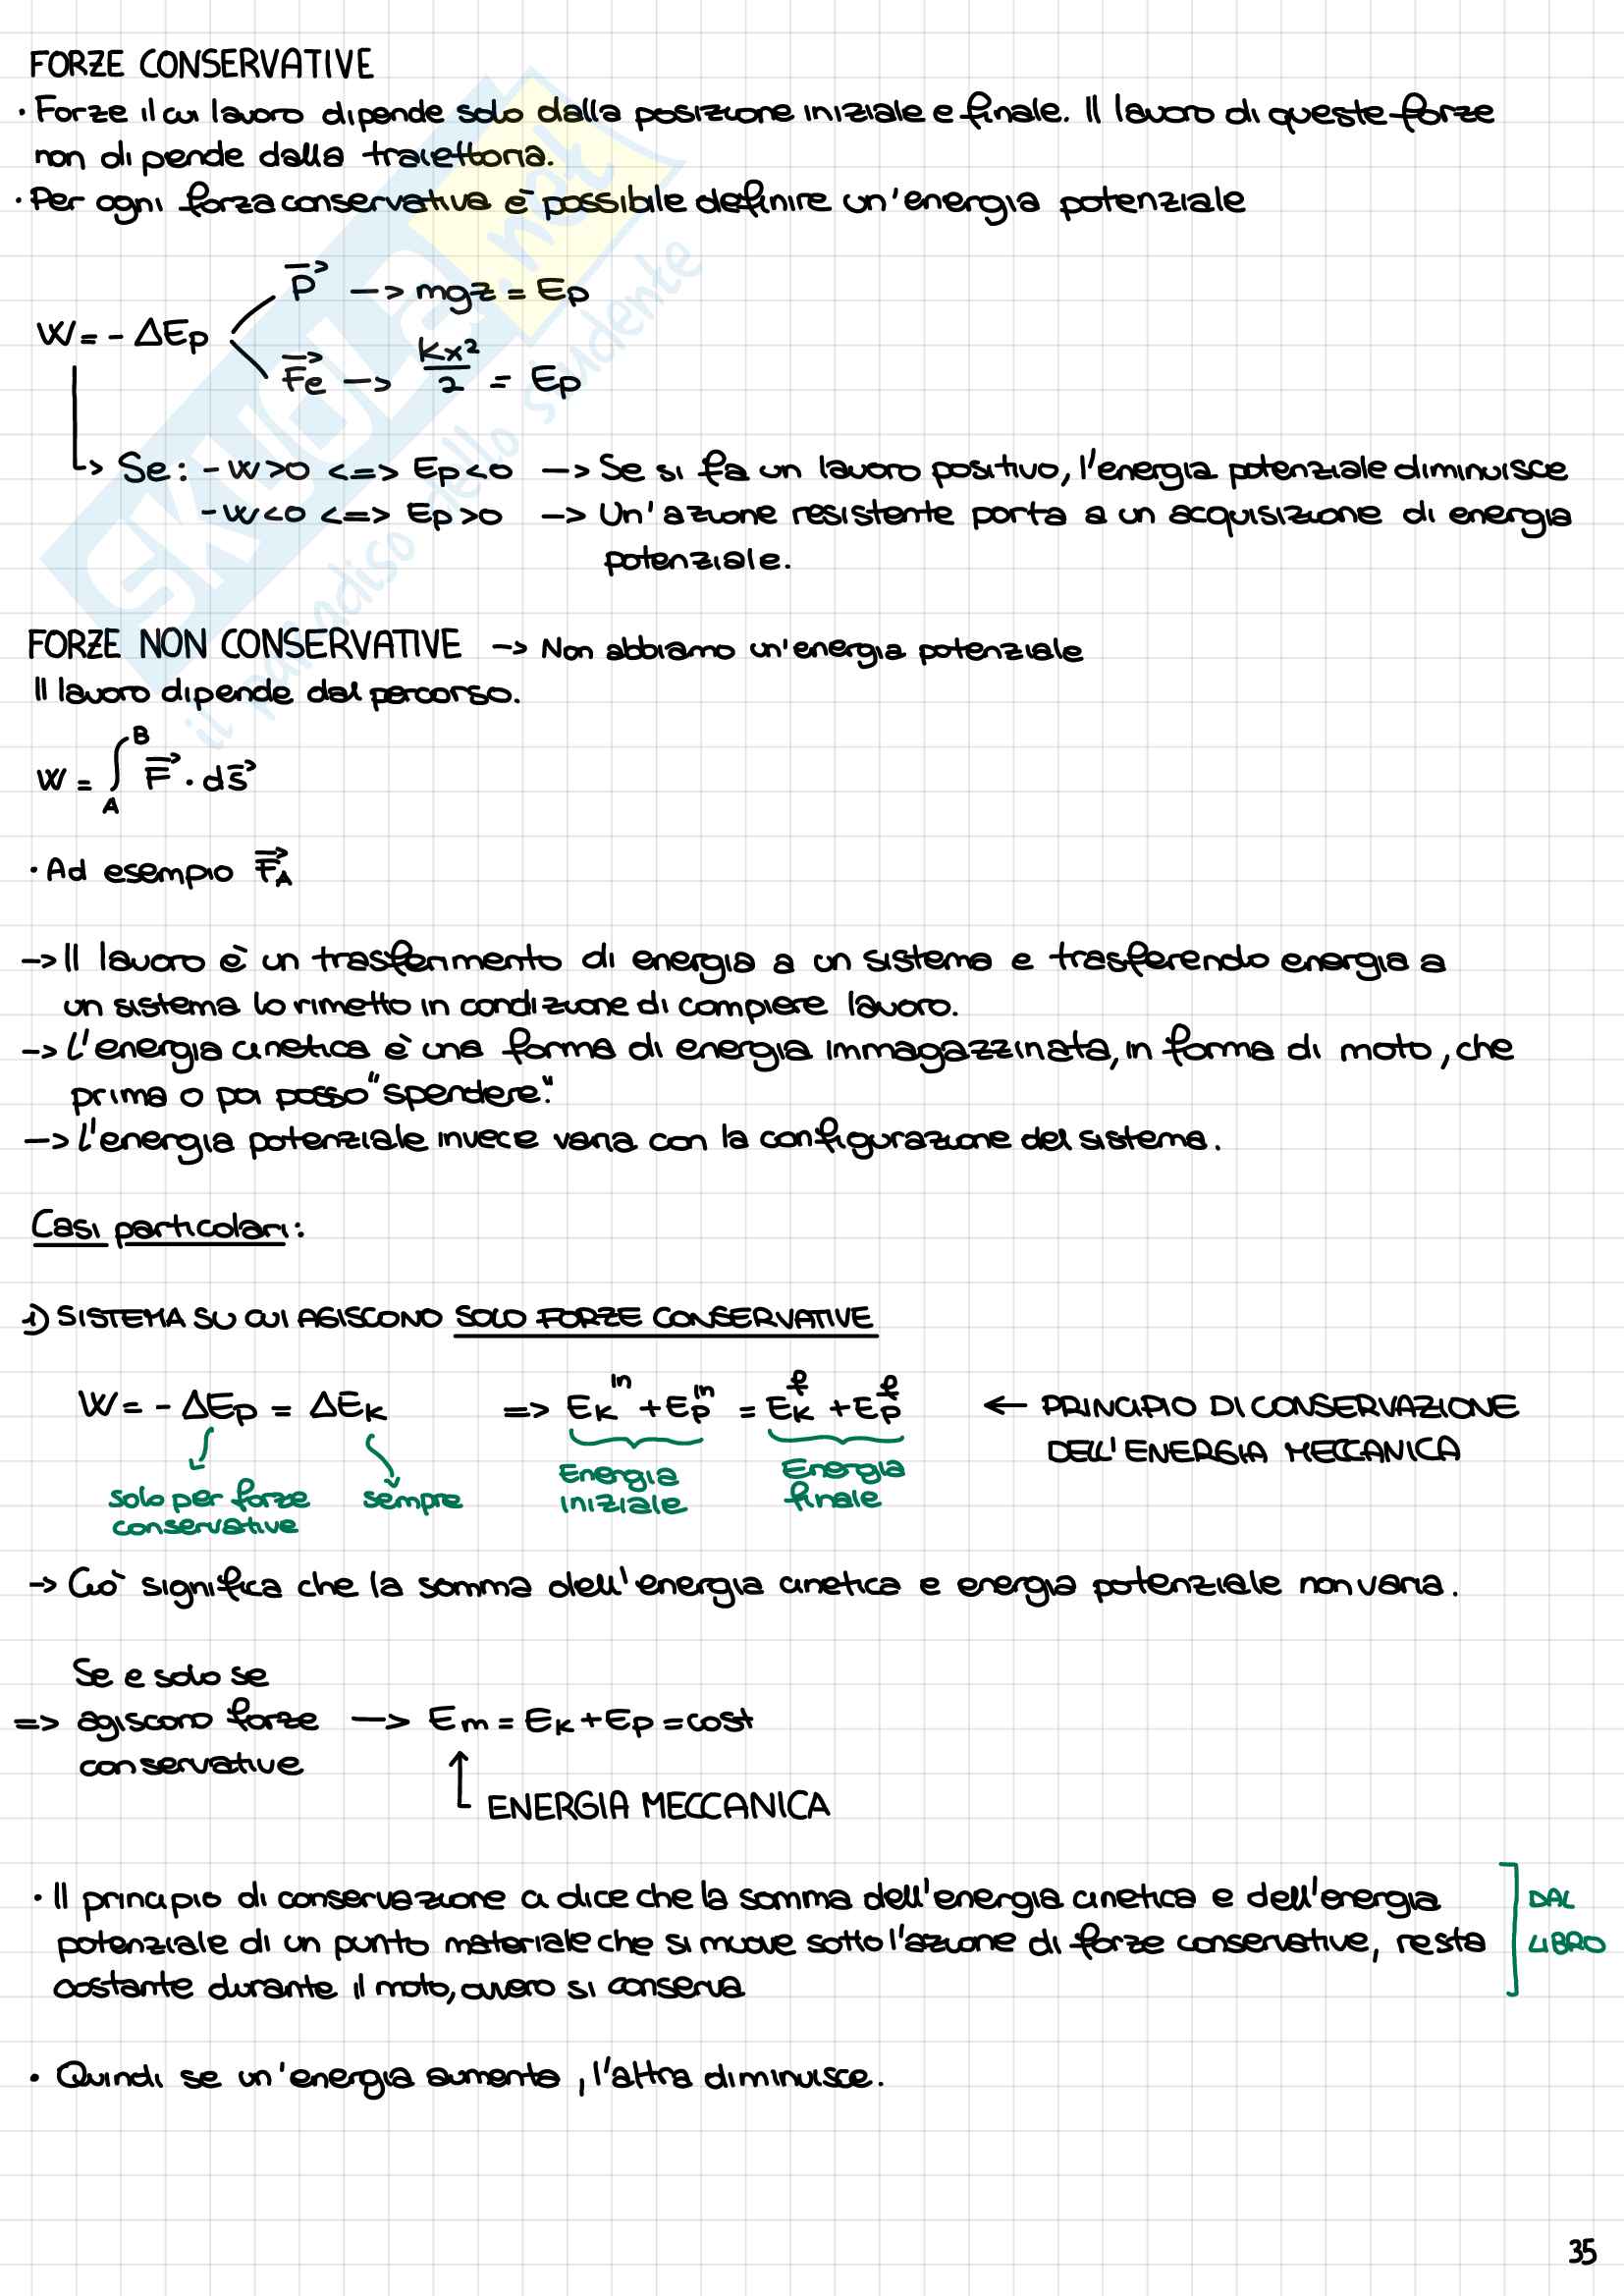 FORZE CONSERVATIVE
· Forze il cui lavoro dipende solo dalla posizione iniziale e finale. Il lavoro di queste forze
non dipende dalla traiettoria.
· Per ogni forza conservativa è possibile definire un'energia potenziale
P⃗ —> mgz = Ep
W = - ΔEp
F⃗e —> Kx²/2 = Ep
↳ Se: - W>0 <=> Ep<0 —> Se si fa un lavoro positivo, l'energia potenziale diminuisce
- W<0 <=> Ep>0 —> Un'azione resistente porta a un acquisizione di energia
potenziale.
FORZE NON CONSERVATIVE —> Non abbiamo un'energia potenziale
Il lavoro dipende dal percorso.
W = ∫_A^B F⃗ · ds⃗
· Ad esempio F⃗A
—> Il lavoro è un trasferimento di energia a un sistema e trasferendo energia a
un sistema lo rimetto in condizione di compiere lavoro.
—> L'energia cinetica è una forma di energia immagazzinata, in forma di moto, che
prima o poi posso "spendere".
—> L'energia potenziale invece varia con la configurazione del sistema.
Casi particolari:
1) SISTEMA SU CUI AGISCONO SOLO FORZE CONSERVATIVE
W = - ΔEp = ΔEk => Ek^in + Ep^in = Ek^f + Ep^f <— PRINCIPIO DI CONSERVAZIONE
DELL'ENERGIA MECCANICA
solo per forze conservative
sempre
Energia iniziale
Energia finale
—> Ciò significa che la somma dell'energia cinetica e energia potenziale non varia.
Se e solo se
=> agiscono forze —> Em = Ek + Ep = cost
conservative
ENERGIA MECCANICA
· Il principio di conservazione ci dice che la somma dell'energia cinetica e dell'energia
potenziale di un punto materiale che si muove sotto l'azione di forze conservative, resta
costante durante il moto, ovvero si conserva
DAL
LIBRO
· Quindi se un'energia aumenta, l'altra diminuisce.
35
SKUOLA.net
il paradiso dello studente